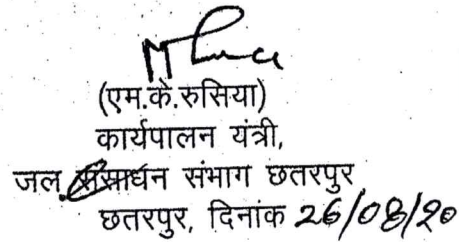 (एम.के.रुसिया)
कार्यपालन यंत्री,
जल संसाधन संभाग छतरपुर
छतरपुर, दिनांक 26/08/20